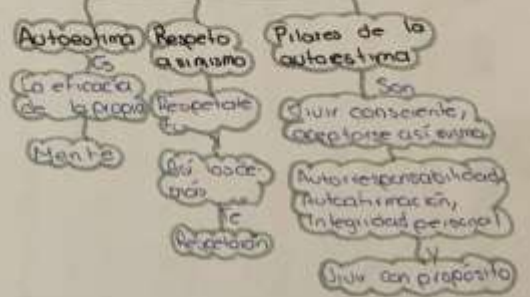 Autoestima
Es
La eficacia
de la propia
Mente
Respeto
a si mismo
Respetate
tu
y
Asi los de-
más
Te
Respetarán
Pilares de la
autoestima
Son
Vivir consciente,
aceptarse así misma
Autorresponsabilidad,
Autoafirmación,
Integridad personal
Y
Vivir con propósito